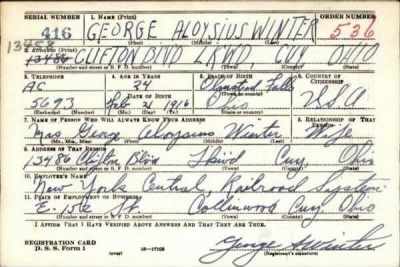 SERIAL NUMBER 1. NAME (Print) ORDER NUMBER
416 GEORGE ALOYSIUS WINTER 536
(First) (Middle) (Last)
13458
2. ADDRESS (Print)
13486 CLIFTON BLVD LKWD. CUY. OHIO
(Number and street or R. F. D. number) (Town) (County) (State)
3. TELEPHONE 4. AGE IN YEARS 5. PLACE OF BIRTH 6. COUNTRY OF CITIZENSHIP
AC 24 Olmsted Falls
DATE OF BIRTH
5693 Feb 21 1916 Ohio U.S.A
(Exchange) (Number) (Mo.) (Day) (Yr.) (State or country)
7. NAME OF PERSON WHO WILL ALWAYS KNOW YOUR ADDRESS 8. RELATIONSHIP OF THAT PERSON
Mrs George Aloysius Winter Wife
(Mr., Mrs., Miss) (First) (Middle) (Last)
9. ADDRESS OF THAT PERSON
13486 Clifton Blvd Lkwd Cuy. Ohio
(Number and street or R. F. D. number) (Town) (County) (State)
10. EMPLOYER'S NAME
New York Central Railroad System
11. PLACE OF EMPLOYMENT OR BUSINESS
E. 152 St Collinwood Cuy. Ohio
(Number and street or R. F. D. number) (Town) (County) (State)
I AFFIRM THAT I HAVE VERIFIED ABOVE ANSWERS AND THAT THEY ARE TRUE.
REGISTRATION CARD
D. S. S. Form 1 (over) 16—17105 George A Winter
(Registrant's signature)